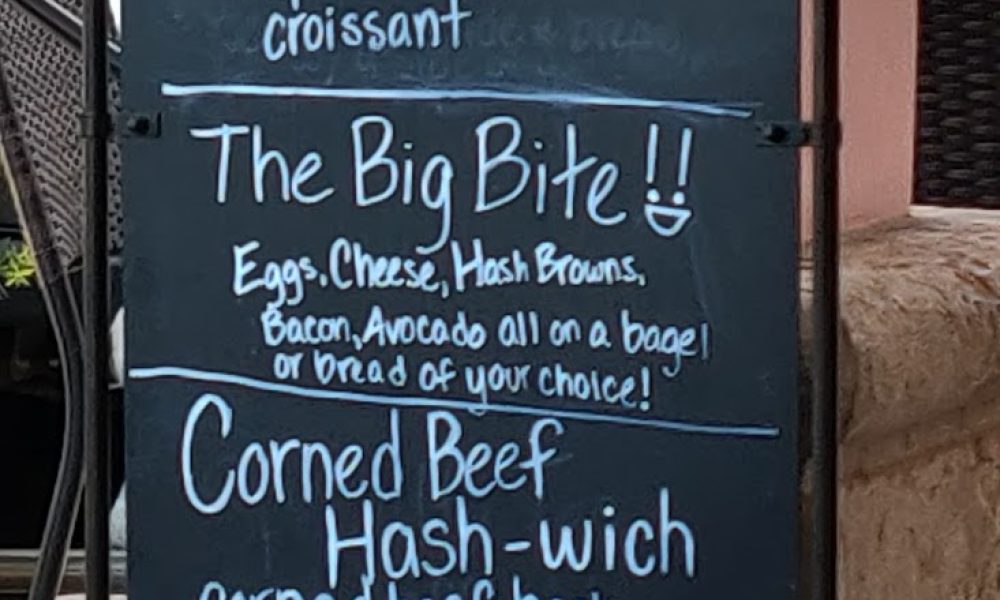 croissant
The Big Bite!!
Eggs, Cheese, Hash Browns,
Bacon, Avocado all on a bagel
or bread of your choice!
Corned Beef
Hash-wich
corned beef